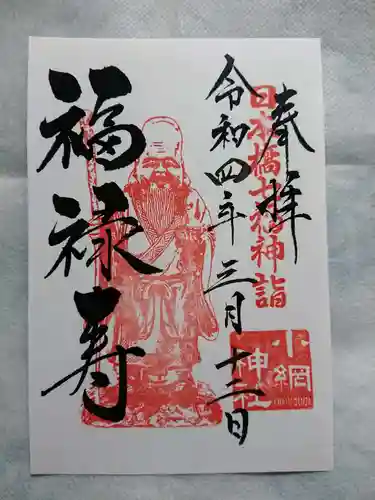 奉拝
日本橋七福神詣
令和四年三月十二日
福禄寿
小網
神社